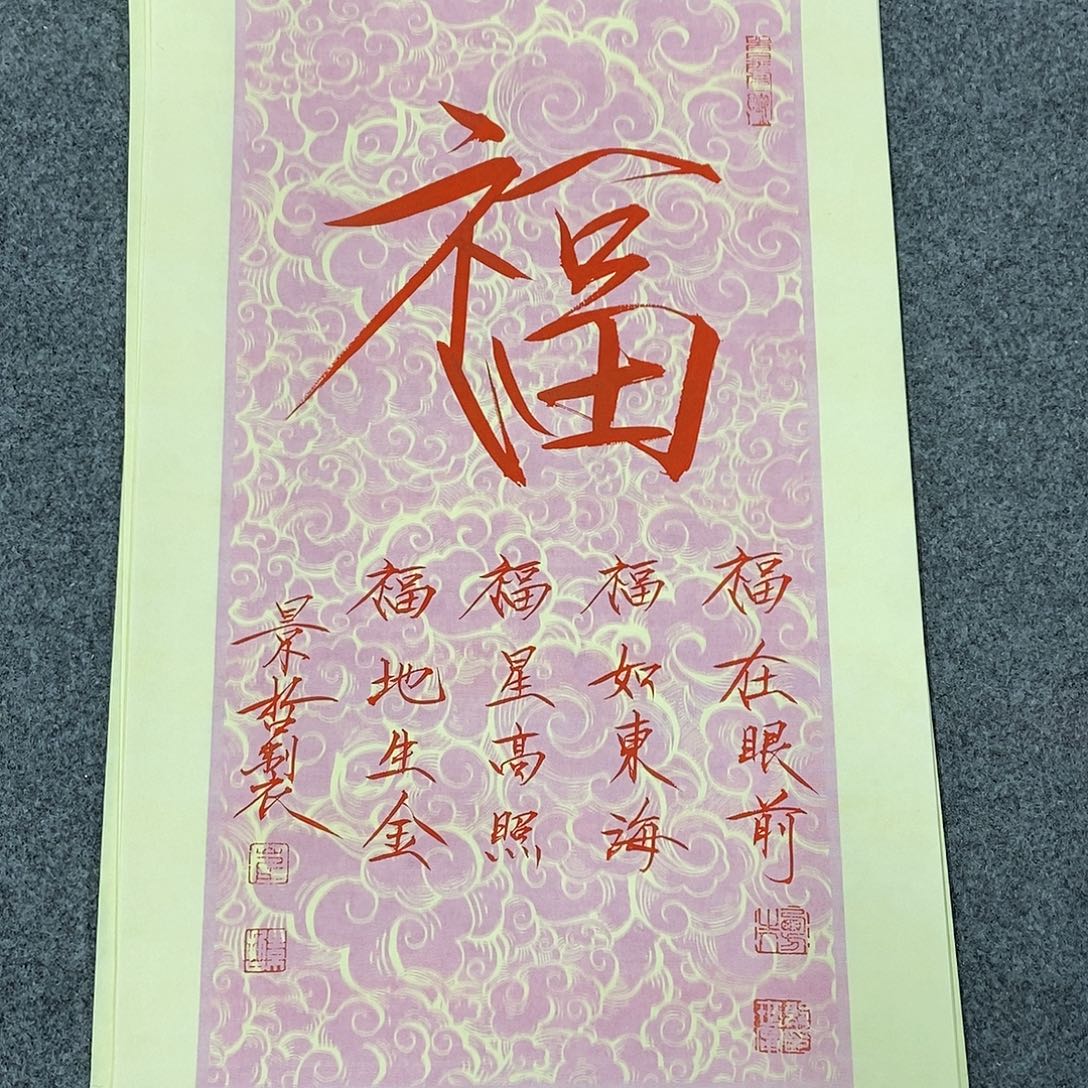 福
福在眼前
福如東海
福星高照
福地生金
景哲製